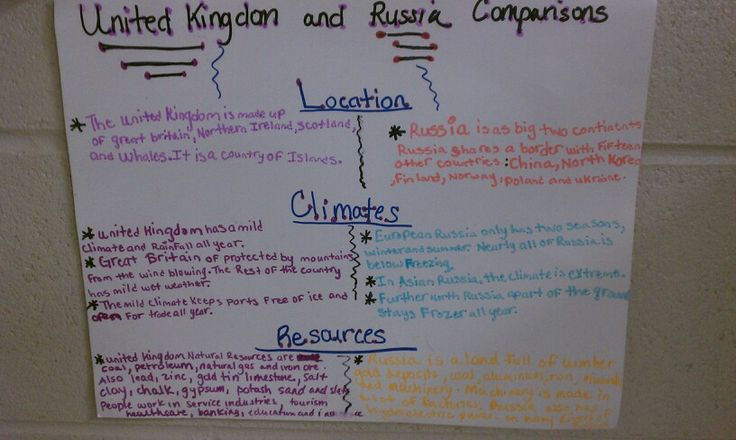 United Kingdom and Russia Comparisons
Location
* The united Kingdom is made up
of great britain, Northern Ireland, Scotland,
and Whales. It is a country of Islands.
* Russia is as big two continents
Russia shares a border with Fifteen
other countries: China, North Korea
, Finland, Norway, Poland and ukraine.
Climates
* United Kingdom has a mild
Climate and RainFall all year.
* Great Britain of protected by mountains
From the wind blowing. The Rest of the country
has mild wet weather.
* The mild Climate Keeps Ports Free of ice and
open For trade all year.
* European Russia only has two seasons,
winter and summer. Nearly all of Russia is
below Freezing.
* In Asian Russia, the climate is extreme.
* Further north Russia apart of the ground
stays Frozer all year.
Resources
* united Kingdom Natural Resources are
coal, petroleum, natural gas and iron ore.
Also lead, zinc, gold tin limestone, salt
clay, chalk, gypsum, potash sand and slate
People work in service industries, tourism
healthcare, banking, education and
* Russia is a land full of
coal, aluminum, iron,
machinery. Machinery is made in
a lot of factories. Russia also has
hydroelectric power. on many rivers of